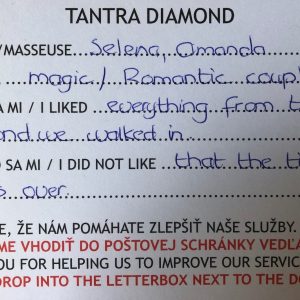 TANTRA DIAMOND
/MASSEUSE...Selena, Amanda
magic/ Romantic coupl
A MI / I LIKED everything from t
nd we walked in
O SA MI / I DID NOT LIKE that the ti
s over.
E, ŽE NÁM POMÁHATE ZLEPŠIŤ NAŠE SLUŽBY.
ME VHODIŤ DO POŠTOVEJ SCHRÁNKY VEDĽA
OU FOR HELPING US TO IMPROVE OUR SERVIC
DROP INTO THE LETTERBOX NEXT TO THE D